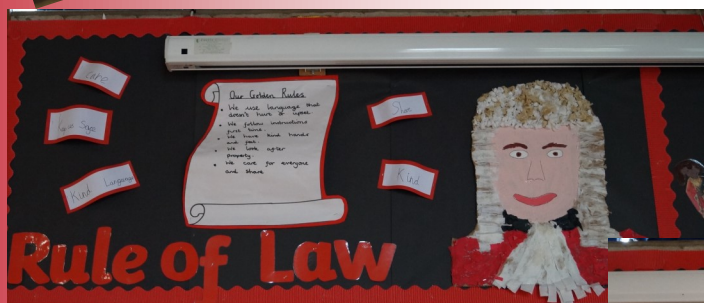 Care
Our Golden Rules
• We use language that
doesn't hurt or upset.
• We follow instructions
first time.
• We have kind hands
and feet.
• We look after
property.
• We care for everyone
and share
Share
Kind Language
Kind
Rule of Law